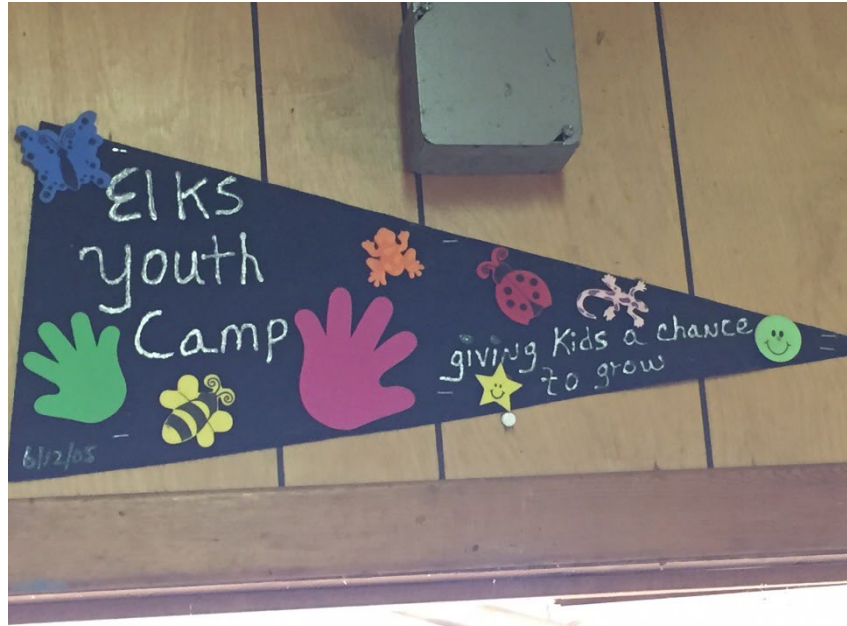 Elks
Youth
Camp
giving Kids a chance
to grow
6/12/05